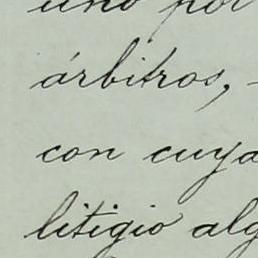 uno por
árbitros,
con cuya
litigio alg